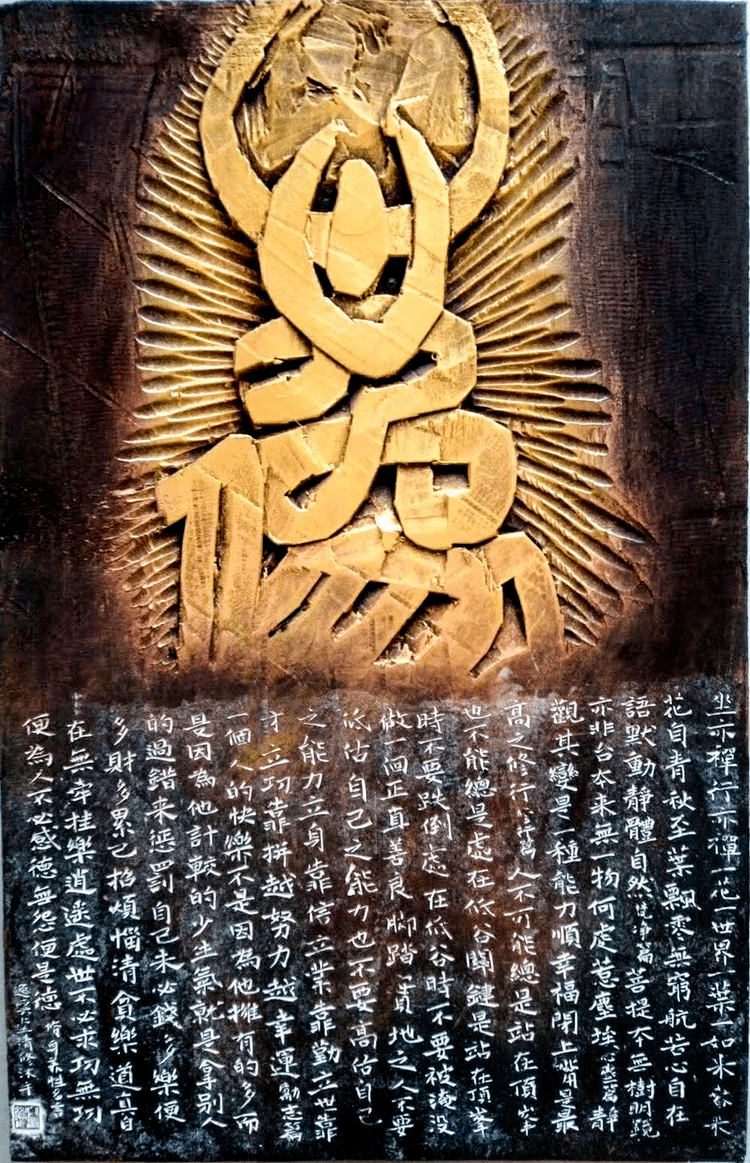 坐亦禪行亦禪一花一世界一葉一如来春来
花自青秋至葉飄零無窮般若心自在
語默動靜體自然 清净篇 菩提本無樹明鏡
亦非台本来無一物何處惹塵埃 篇 静
觀其變是一種能力順幸福閉上嘴是最
高之修行 修行篇 人不可能總是站在頂峯
也不能總是處在低谷關鍵是站在頂峯
時不要跌倒處在低谷時不要被淹没
做一個正直善良脚踏實地之人不要
低估自己之能力也不要高估自己
之能力立身靠信立業靠勤立世靠
才立功靠拼越努力越幸運 勵志篇
一個人的快樂不是因為他擁有的多而
是因為他計較的少生氣就是拿别人
的過錯来惩罰自己未必錢多樂便
多財多累己招煩惱清貧樂道真自
在無牽挂樂逍遥處世不必求功無功
便為人不必感德無怨便是德